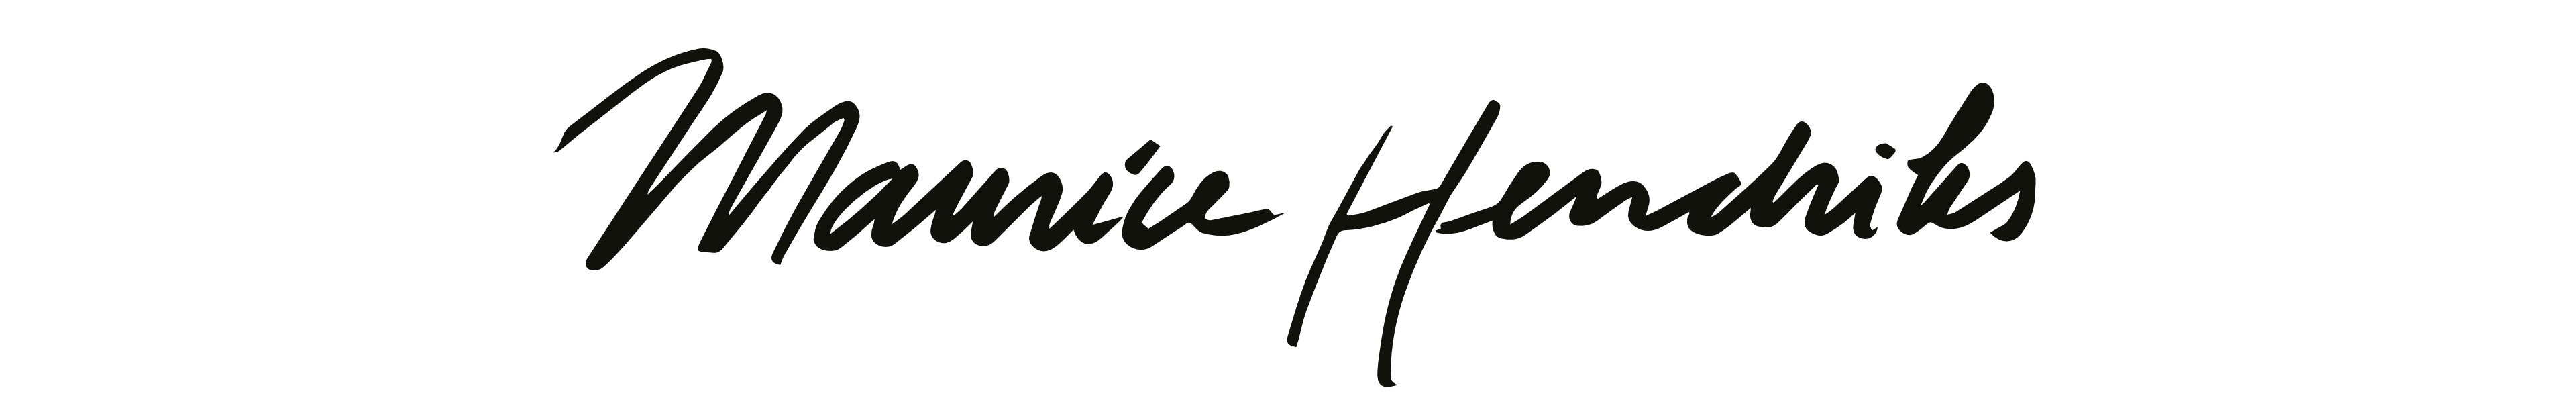 Maurice Hendriks